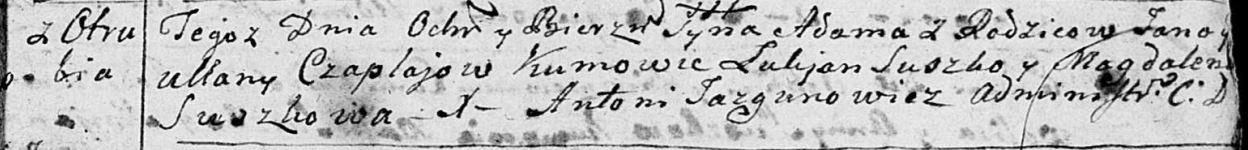 z Otru Tegoz Dnia Ochr y Bierzm Syna Adama z Rodzicow Jana y
bia ullany Czaplajow Kumowie Lulijan Suszko y Magdalena
Suszkowa - X - Antoni Jazgunowicz Administr. C. D